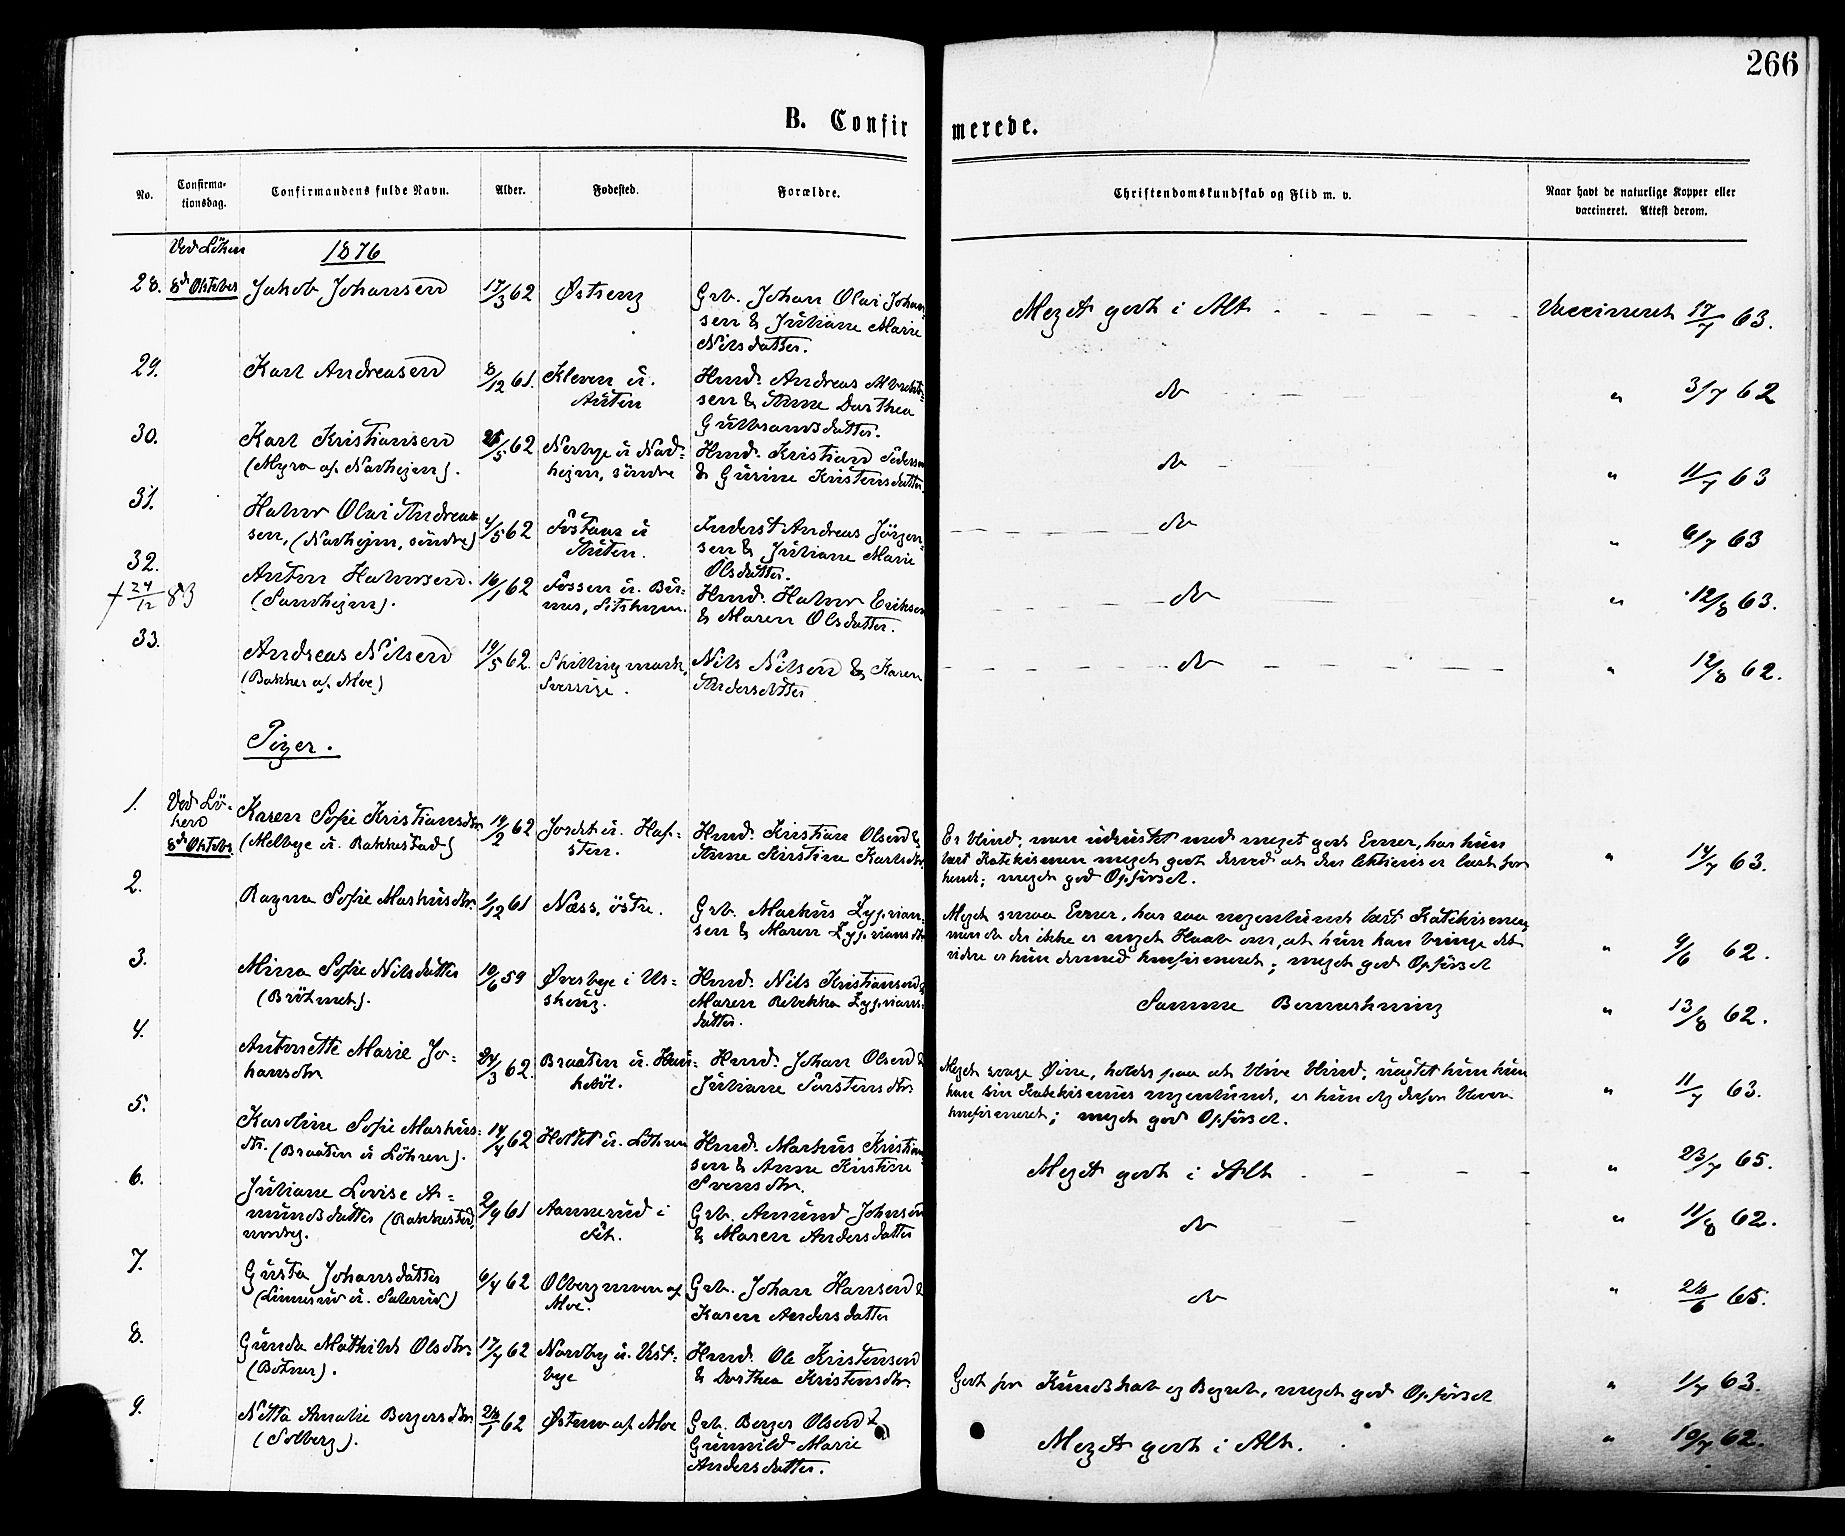 266
B. Confirmerede.
No.
Confirma-
tionsdag.
Confirmandens fulde Navn.
Alder.
Fødested.
Forældre.
Christendomskundskab og Flid m. v.
Naar havt de naturlige Kopper eller
vaccineret. Attest derom.
Ved Löken
1876
28. 8de Oktober Jakob Johansen 17/3 62 Østseng Grb. Johan Olai Johan-
sen & Juliane Marie
Nilsdatter.
Meget godt i Alt Vaccineret 17/7 63.
29. Karl Andreasen 8/12 61. Kleven u.
Auten
Hmd. Andreas
sen & Anne Dorthea
Gulbrandsdatter.
do " 3/7 62
30. Karl Kristiansen
(Myra af Nordhejm). 25/5 62 Nerbye u Nord-
hejm, söndre
Hmd. Kristian Pedersen
& Gurine Kristensdatter.
do " 11/7 63
31. Halvor Olai Andrea-
sen, (Nordhejm, söndre) 4/5 62 Fostane u
Auten.
Inderst Andreas Jörgen-
sen & Juliane Marie
Olsdatter.
do " 6/7 63
32. Anton Halvorsen.
(Sandhejm). 16/1 62 Fossen u.
Hmd. Halvor Eriksen
& Maren Olsdatter.
do " 12/8 63.
† 24/12 83
33. Andreas Nilsen
(Bakken af Moe) 19/5 62. Skillingmark,
Sverige.
Nils Nilsen & Karen
Andersdatter
do " 12/8 62.
Piger.
1. Ved Lö-
ken
8de Oktober
Karen Sofie Kristiansdtr.
(Melbye u. Rakkestad) 19/2 62
Hmd. Kristian Olsen &
Anne Kirstine Karlsdtr.
Er blind; men udrustet med meget gode Evner, har hun
lært Katekismen meget godt derved at den er læst for
hende; meget god Opförsel.
" 14/7 63.
2. Ragna Sofie Markusdtr. 1/12 61 Næss, östre.
Grb. Markus Zyprian-
sen & Maren Zypriansdtr
Meget smaa Evner, har saa nogenlunde lært Katekismen
men da der ikke er noget Haab om, at hun kan bringe det
videre er hun dermed konfirmeret; meget god Opförsel
" 9/6 62.
3. Mina Sofie Nilsdatter 10/6 59 Øverbye i Ur-
skoug.
Hmd. Nils Kristiansen &
Maren Rebekka Zyprians-
datter.
Samme Bemærkning " 13/8 62.
4. Antonette Marie Jo-
hansdtr 24/3 62. Braaten u.
Hmd. Johan Olsen &
Juliane Torstensdtr
Meget svage Øine, holder paa at blive blind,
kan sin Katekismus nogenlunde, er hun
konfirmeret; meget god Opförsel.
" 11/7 63.
5. Karoline Sofie Markus-
dtr. (Braaten u Löken). 14/4 62 Holtet u. Löken
Hmd. Markus Kristian-
sen & Anne Kirstine
Svensdtr.
Meget godt i Alt " 23/7 65.
6. Juliane Lovise A-
mundsdatter (Rakkestad, 2/9 61 Aamerud i
Fet.
Grb. Amund Johnsen
& Maren Andersdatter
do " 11/8 62.
7. Gusta Johansdatter
(Linnerud u. Sulerud) 6/4 62
Moe.
Grb. Johan Hansen &
Karen Andersdatter
do " 28/6 65.
8. Gunda Mathilde Olsdtr.
(Bötner). 17/7 62 Nordby u. Ust-
bye
Hmd. Ole Kristensen
& Dorthea Kristensdtr.
Godt for Kundskab og Begreb, meget god Opförsel
" 1/7 63.
9. Netta Amalie Bergersdtr.
(Solberg). 28/1 62 af Moe
Grb. Berger Olsen &
Gunnild Marie
Andersdatter.
Meget godt i Alt. " 10/7 62.